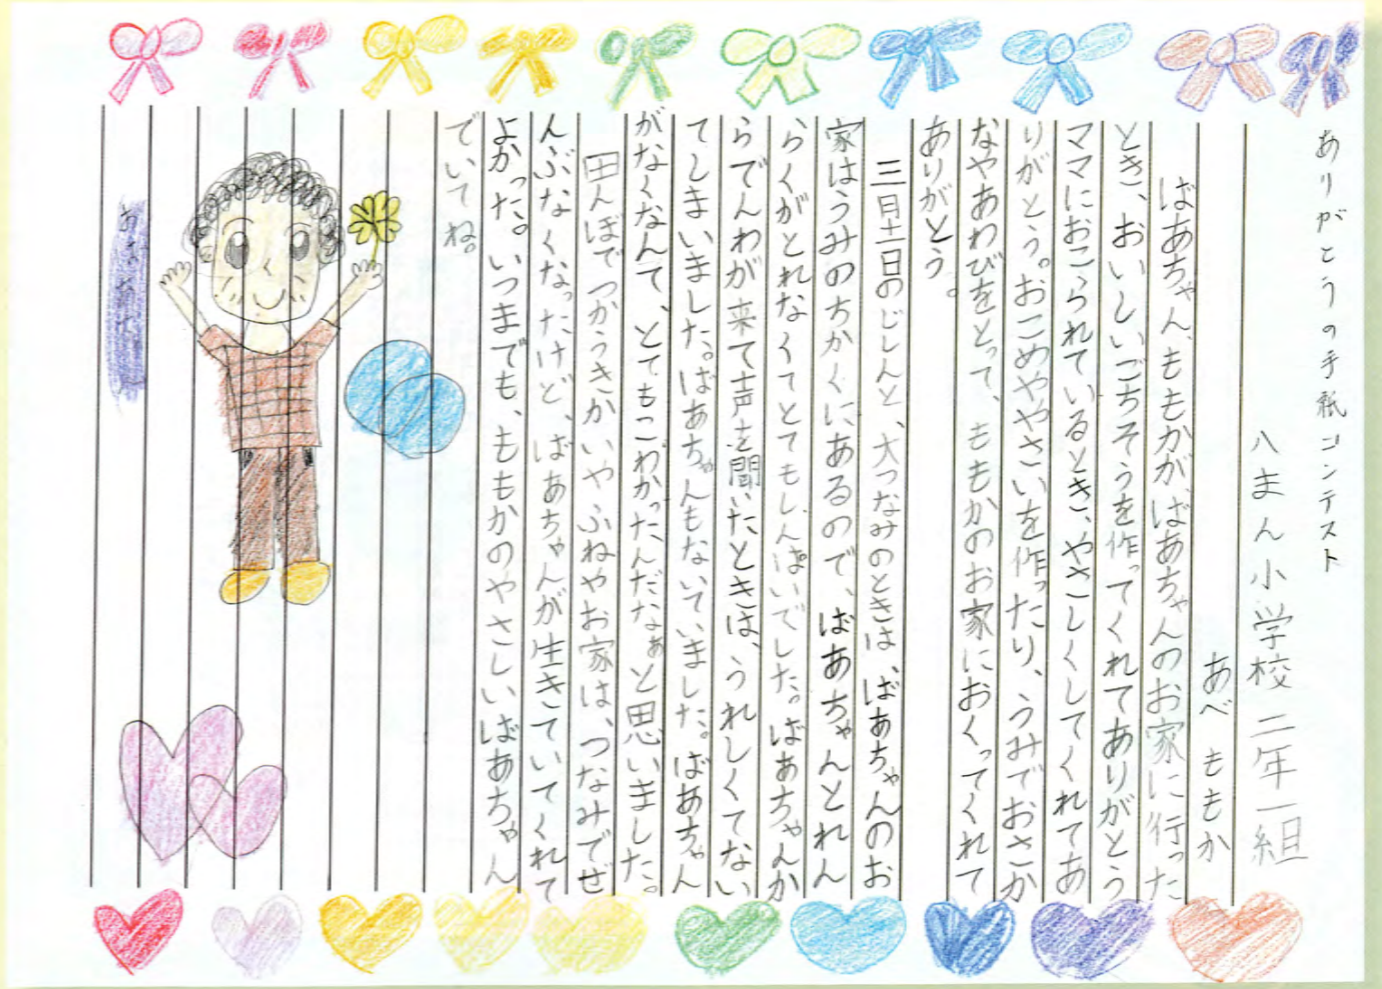 ありがとうの手紙コンテスト
八まん小学校二年一組
あべ ももか
ばあちゃん、ももかがばあちゃんのお家に行った
とき、おいしいごちそうを作ってくれてありがとう
ママにおこられているとき、やさしくしてくれてあ
りがとう。おこめややさいを作ったり、うみでおさか
なやあわびをとって、ももかのお家におくってくれて
ありがとう。
三月十一日のじしんと、大つなみのときは、ばあちゃんのお
家はうみのちかくにあるので、ばあちゃんとれん
らくがとれなくてとてもしんぱいでした。ばあちゃんか
らでんわが来て声を聞いたときは、うれしくてない
てしまいました。ばあちゃんもないていました。ばあちゃん
がなくなんて、とてもこわかったんだなぁと思いました。
田んぼでつかうきかいやふねやお家は、つなみでぜ
んぶなくなったけど、ばあちゃんが生きていてくれて
よかった。いつまでも、ももかのやさしいばあちゃん
でいてね。